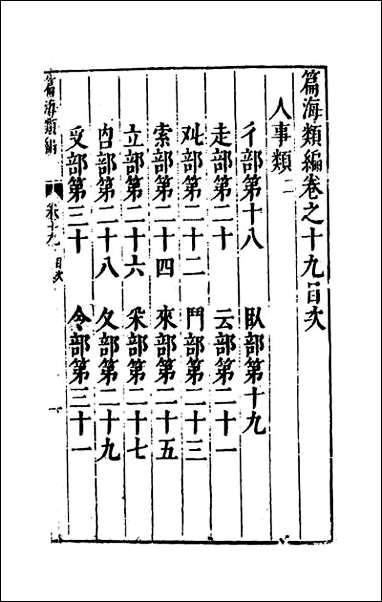 篇海類編卷之十九目次
人事類二
彳部第十八　臥部第十九
走部第二十　云部第二十一
癶部第二十二　鬥部第二十三
索部第二十四　來部第二十五
立部第二十六　釆部第二十七
㕯部第二十八　夂部第二十九
受部第三十　令部第三十一
篇海類編　卷十九　目次　一